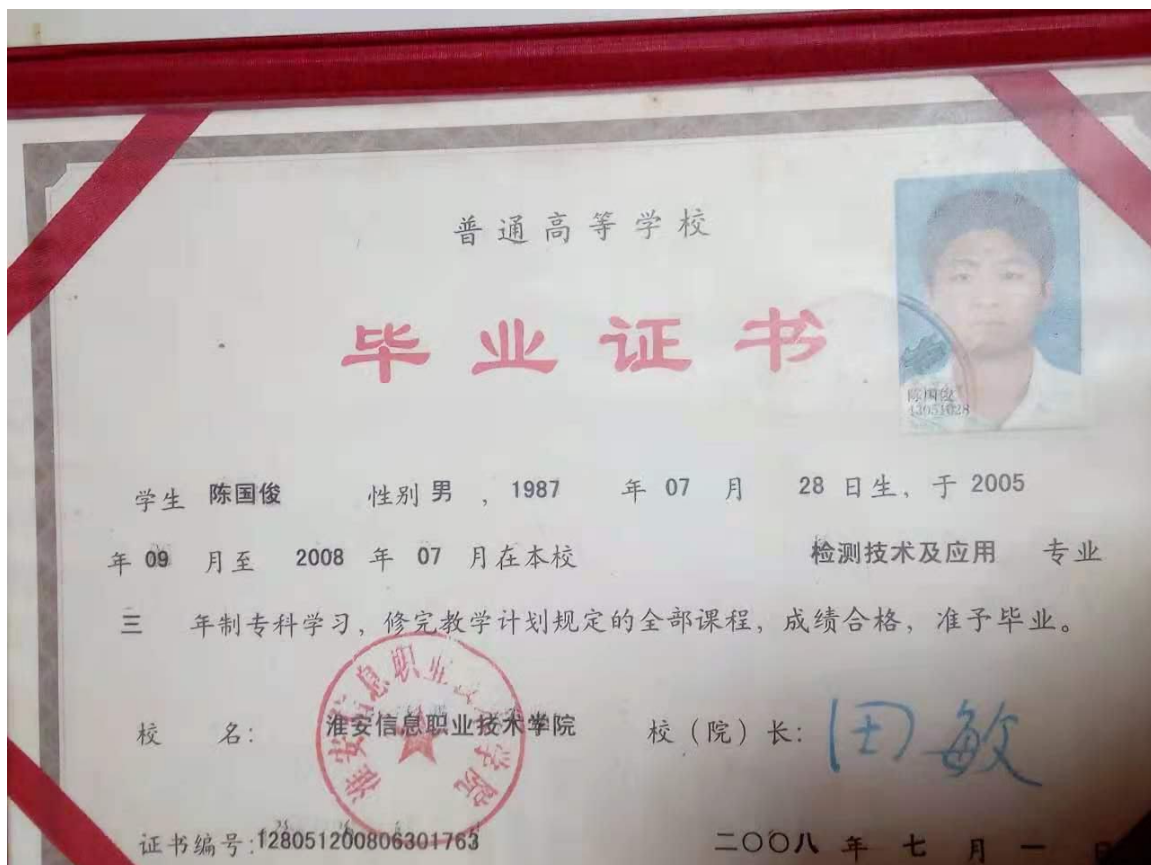 普通高等学校
毕业证书
陈国俊
43051028
学生 陈国俊 性别 男 ，1987 年 07 月 28 日生，于 2005
年 09 月至 2008 年 07 月在本校 检测技术及应用 专业
三 年制专科学习，修完教学计划规定的全部课程，成绩合格，准予毕业。
淮安信息职业技术学院
校 名: 淮安信息职业技术学院 校（院）长: 田敏
证书编号:128051200806301763 二〇〇八 年 七 月 一 日